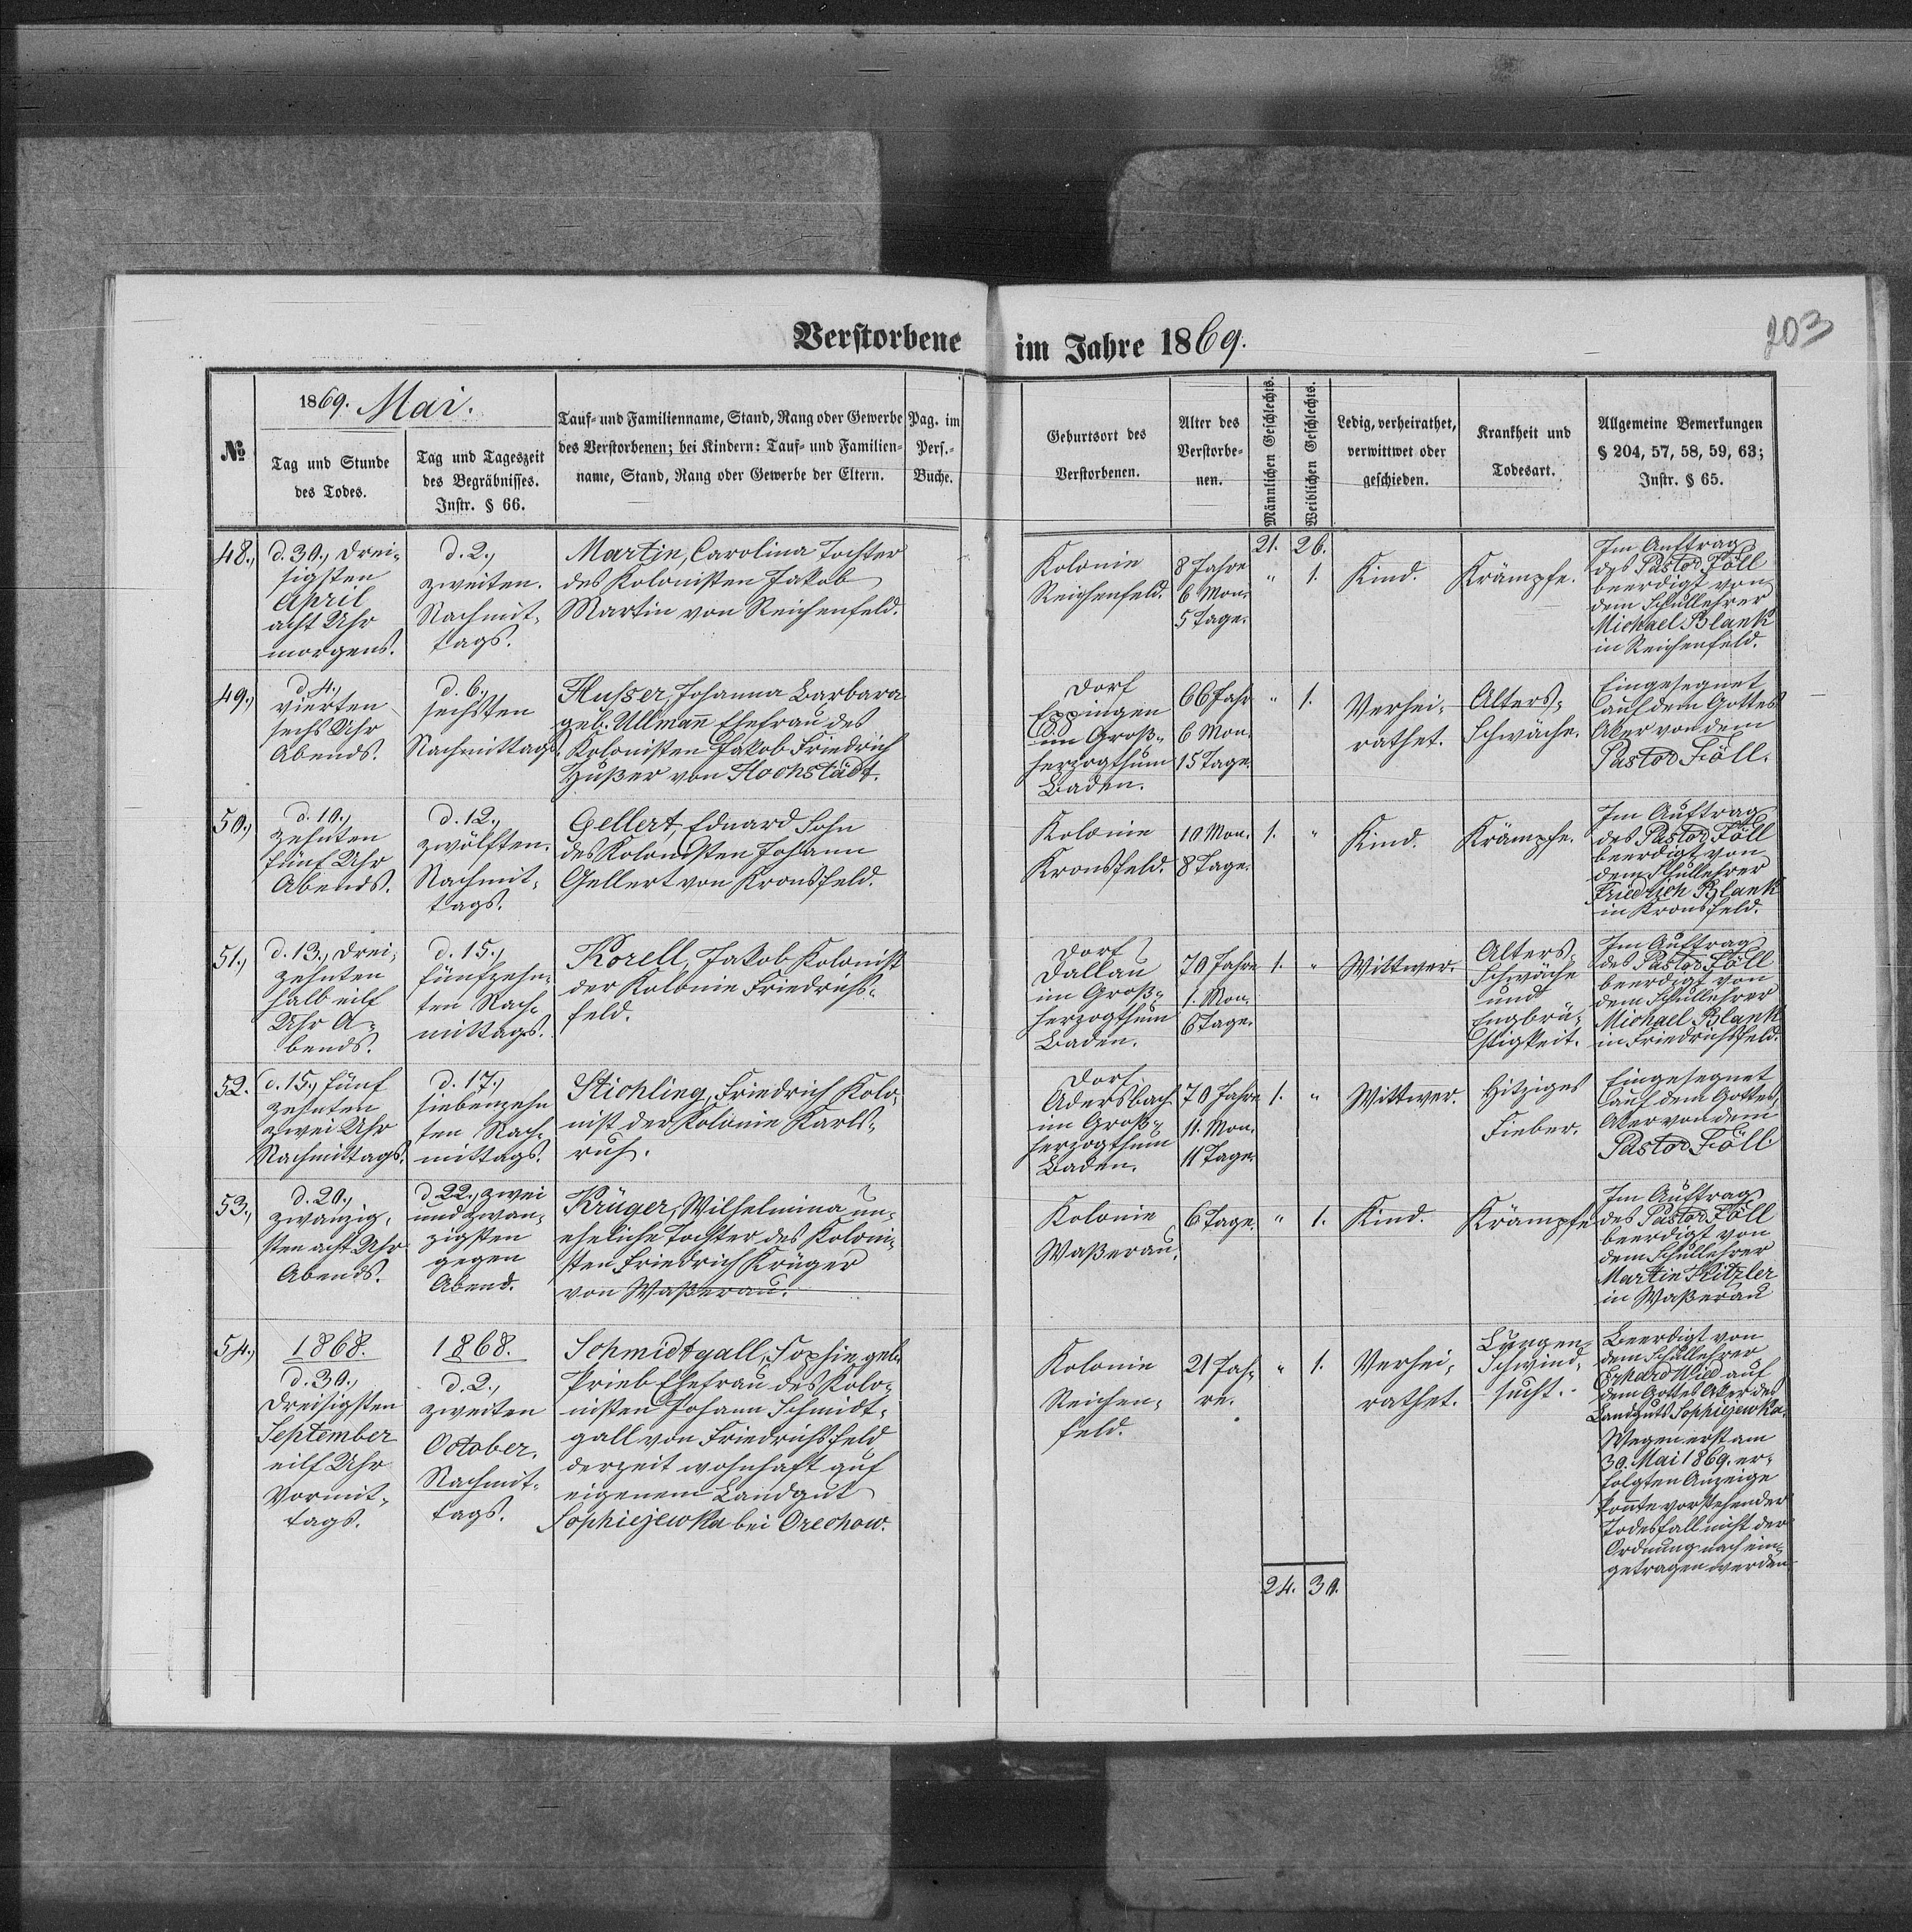 Verstorbene im Jahre 1869.
203
№
1869. Mai.
Tag und Stunde
des Todes.
Tag und Tageszeit
des Begräbnisses.
Instr. § 66.
Tauf- und Familienname, Stand, Rang oder Gewerbe
des Verstorbenen; bei Kindern: Tauf- und Familien-
name, Stand, Rang oder Gewerbe der Eltern.
Pag. im
Pers.-
Buche.
Geburtsort des
Verstorbenen.
Alter des
Verstorbe-
nen.
Männlichen Geschlechts.
Weiblichen Geschlechts.
Ledig, verheirathet,
verwittwet oder
geschieden.
Krankheit und
Todesart.
Allgemeine Bemerkungen
§ 204, 57, 58, 59, 63;
Instr. § 65.
21. 26.
48.,
d. 30., drei-
sigsten
April
acht Uhr
morgens.
d. 2.,
zweiten.
Nachmit-
tags.
Martin, Carolina Tochter
des Kolonisten Jakob
Martin von Reichenfeld.
Kolonie
Reichenfeld.
8 Jahre
6 Mon.
5 Tage.
"
1.
Kind.
Krämpfe.
Im Auftrag
des Pastor Föll
beerdigt von
dem Schullehrer
Michael Blank
in Reichenfeld.
49.,
d. 4.,
vierten
sechs Uhr
Abends.
d. 6.,
sechsten
Nachmittags.
Husser, Johanna Barbara
geb. Ullmann Ehefrau des
Kolonisten Jakob Friedrich
Hußer von Hochstädt.
Dorf
Eppingen
im Groß-
herzogthum
Baden.
66 Jahr
6 Mon.
15 Tage.
"
1.
Verhei-
rathet.
Alters-
Schwäche.
Eingesegnet
auf dem Gottes
Aker von dem
Pastor Föll.
50.,
d. 10.,
zehnten
fünf Uhr
Abends.
d. 12.,
zwölften.
Nachmit-
tags.
Gellert, Eduard Sohn
des Kolonisten Johann
Gellert von Kronsfeld.
Kolonie
Kronsfeld.
10 Mon.
8 Tage.
1.
"
Kind.
Krämpfe.
Im Auftrag
des Pastor Föll
beerdigt von
dem Schullehrer
Friedrich Blank
in Kronsfeld.
51.,
d. 13., drei-
zehnten
halb eilf
Uhr A-
bends.
d. 15.,
fünfzehn-
ten Nach-
mittags.
Korell, Jakob Kolonist
der Kolonie Friedrichs-
feld.
Dorf
Dallau
im Groß-
herzogthum
Baden.
70 Jahre
1. Mon.
6 Tage.
1.
"
Wittwer.
Alters-
Schwäche
und
Engbrü-
stigkeit.
Im Auftrag
des Pastor Föll
beerdigt von
dem Schullehrer
Michael Blank
in Friedrichsfeld.
52.
d. 15., fünf
zehnten
zwei Uhr
Nachmittags.
d. 17.,
siebenzehn
ten Nach-
mittags.
Stichling, Friedrich Kolo-
nist der Kolonie Karls-
ruh.
Dorf
Adersbach
im Groß-
herzogthum
Baden.
70 Jahre
11. Mon.
11 Tage.
1.
"
Wittwer.
Hitziges
Fieber.
Eingesegnet
auf dem Gottes
Aker von dem
Pastor Föll.
53.,
d. 20.,
zwanzig-
sten acht Uhr
Abends.
d. 22., zwei
und zwan-
zigsten
gegen
Abend.
Krüger, Wilhelmina un-
eheliche Tochter des Koloni-
sten Friedrich Krüger
von Waßerau.
Kolonie
Waßerau.
6 Tage.
"
1.
Kind.
Krämpfe
Im Auftrag
des Pastor Föll
beerdigt von
dem Schullehrer
Martin Kitzler
in Waßerau
54.,
1868.
d. 30.,
dreisigsten
September
eilf Uhr
Vormit-
tags.
1868.
d. 2.,
zweiten
October.
Nachmit-
tags.
Schmidtgall, Sophie, geb.
Prieb Ehefrau des Kolo-
nisten Johann Schmidt-
gall von Friedrichsfeld,
derzeit wohnhaft auf
eigenem Landgut
Sophiejewka bei Orechow.
Kolonie
Reichen-
feld.
21 Jah-
re.
"
1.
Verhei-
rathet.
Lungen-
Schwind-
sucht.
Beerdigt von
dem Schullehrer
Erhard Wied auf
dem Gottes Aker des
Landguts Sophiejewka.
Wegen erst am
30. Mai 1869. er-
folgten Anzeige
konnte vorstehender
Todesfall nicht der
Ordnung nach ein-
getragen werden
24. 30.